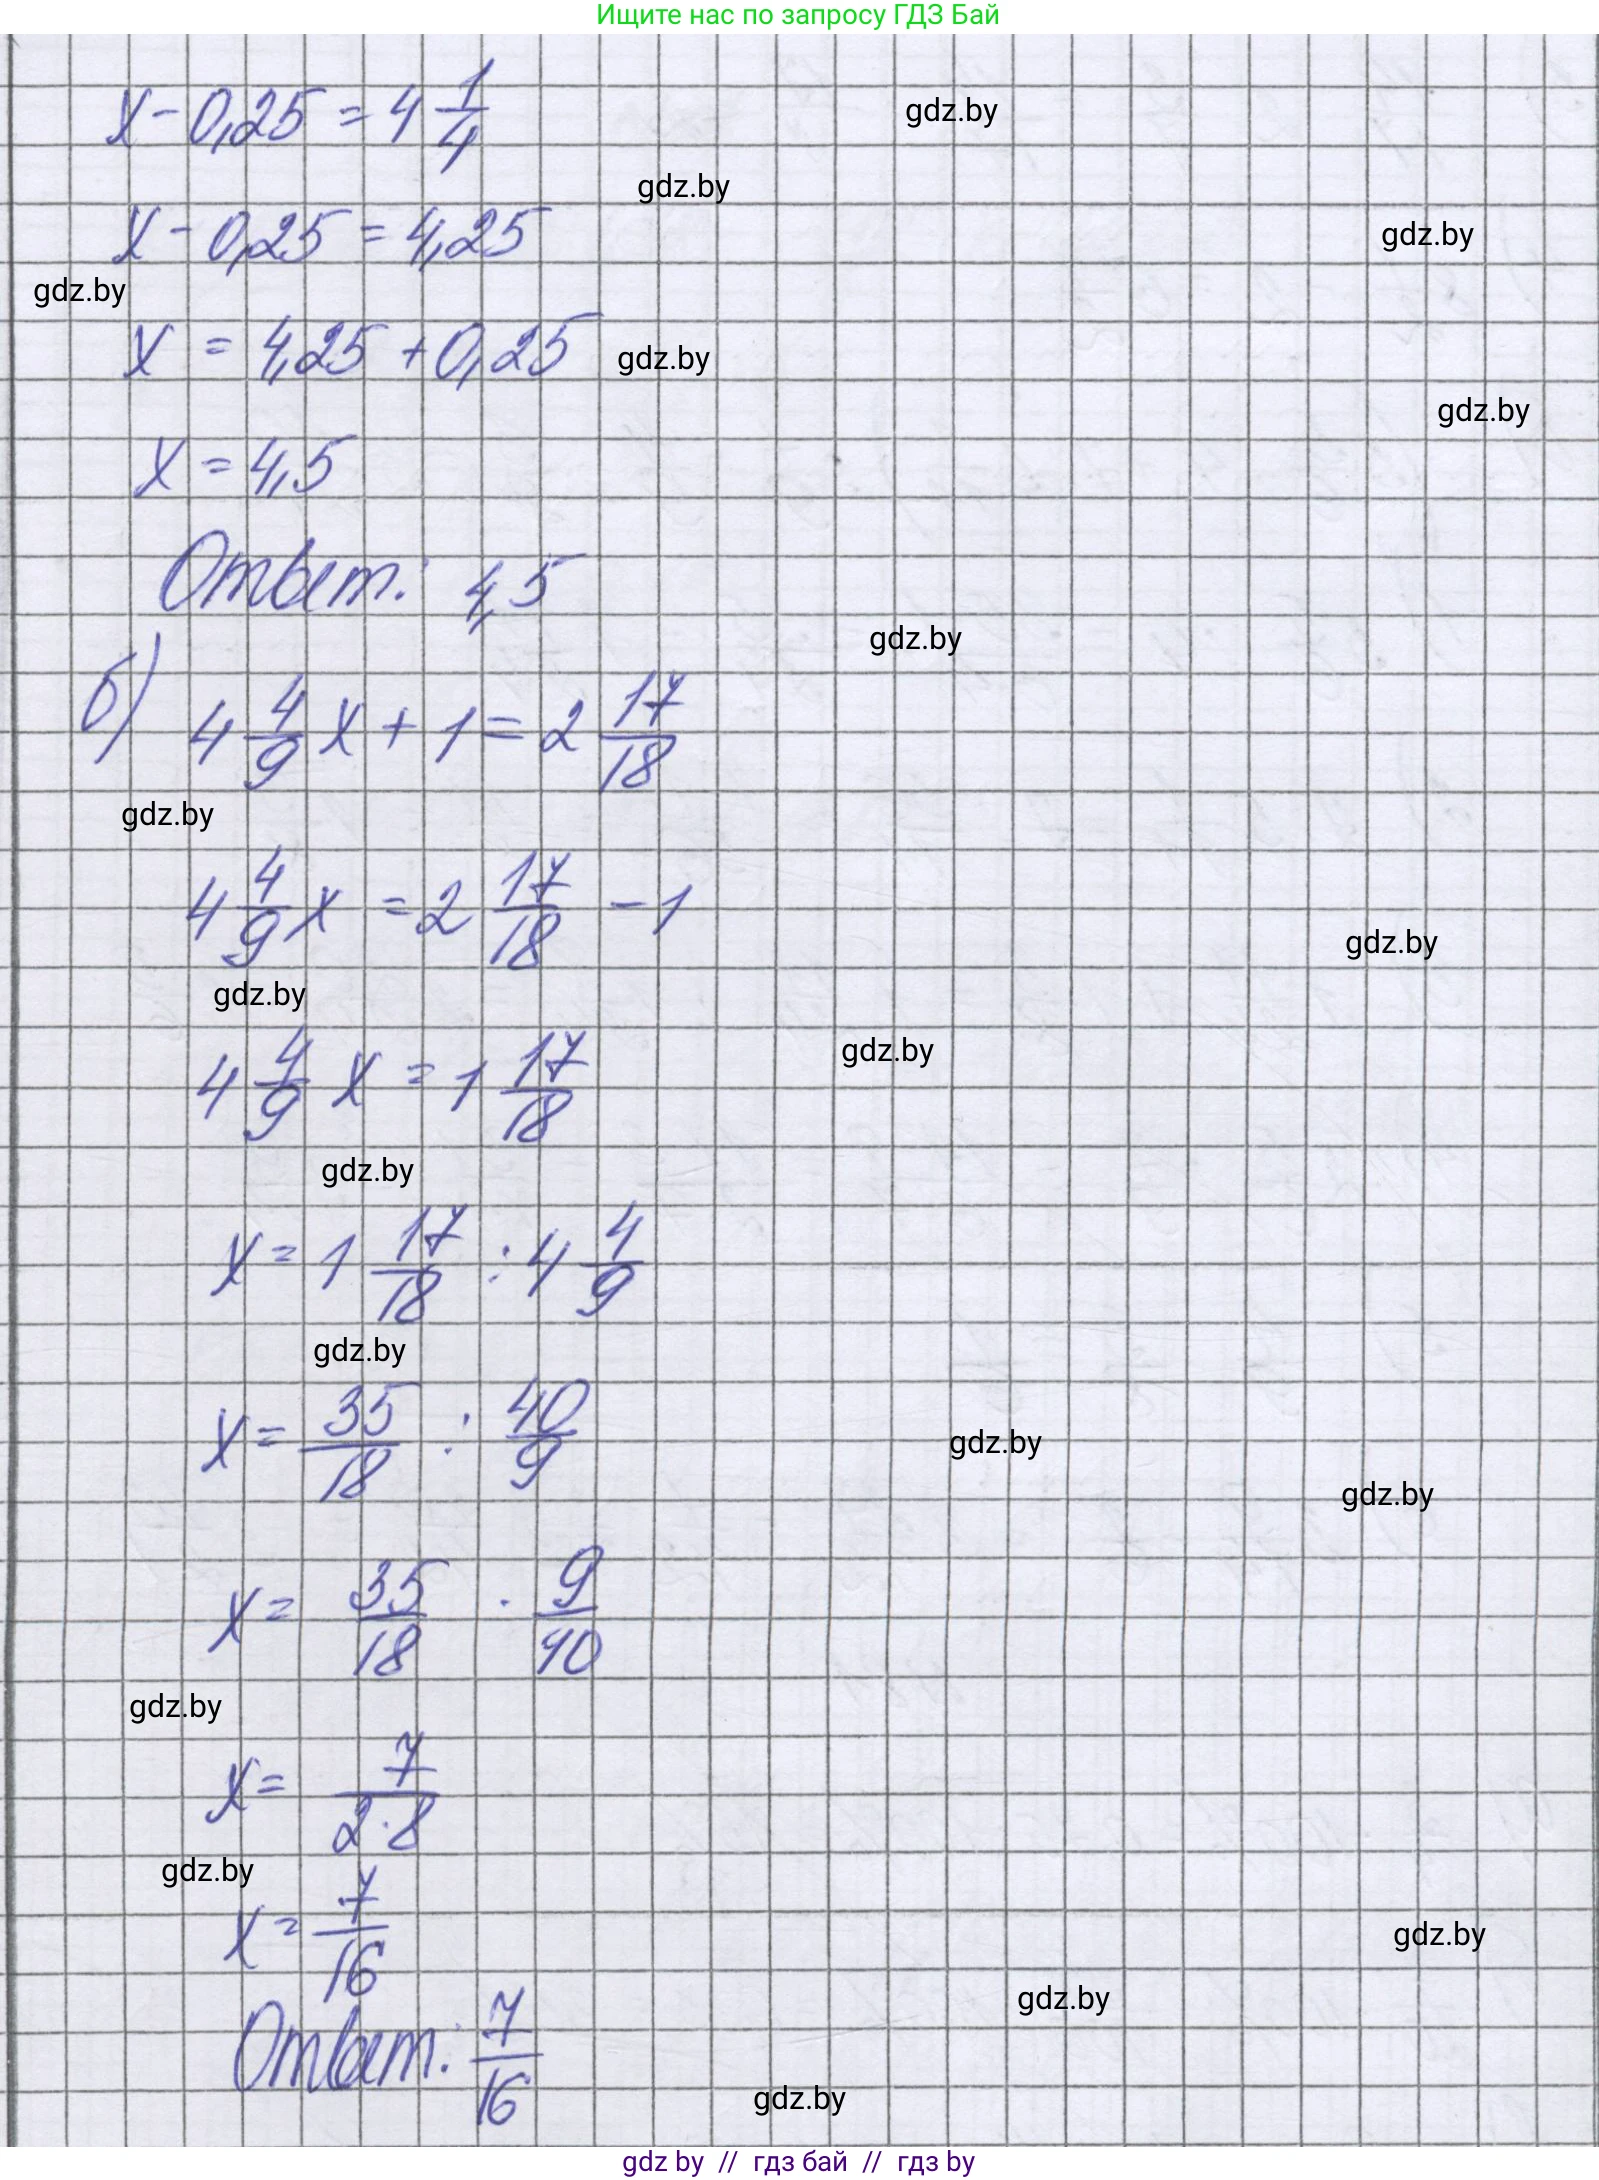 Ищите нас по запросу ГДЗ Бай
x - 0,25 = 4 1/4
gdz.by
gdz.by
x - 0,25 = 4,25
gdz.by
gdz.by
x = 4,25 + 0,25
gdz.by
gdz.by
x = 4,5
Ответ: 4,5
gdz.by
б) 4 4/9 x + 1 = 2 17/18
gdz.by
4 4/9 x = 2 17/18 - 1
gdz.by
gdz.by
4 4/9 x = 1 17/18
gdz.by
gdz.by
x = 1 17/18 : 4 4/9
gdz.by
x = 35/18 : 40/9
gdz.by
gdz.by
x = 35/18 · 9/40
gdz.by
x = 7/2·8
gdz.by
x = 7/16
gdz.by
gdz.by
Ответ: 7/16
gdz.by
gdz by // гдз бай // гдз by